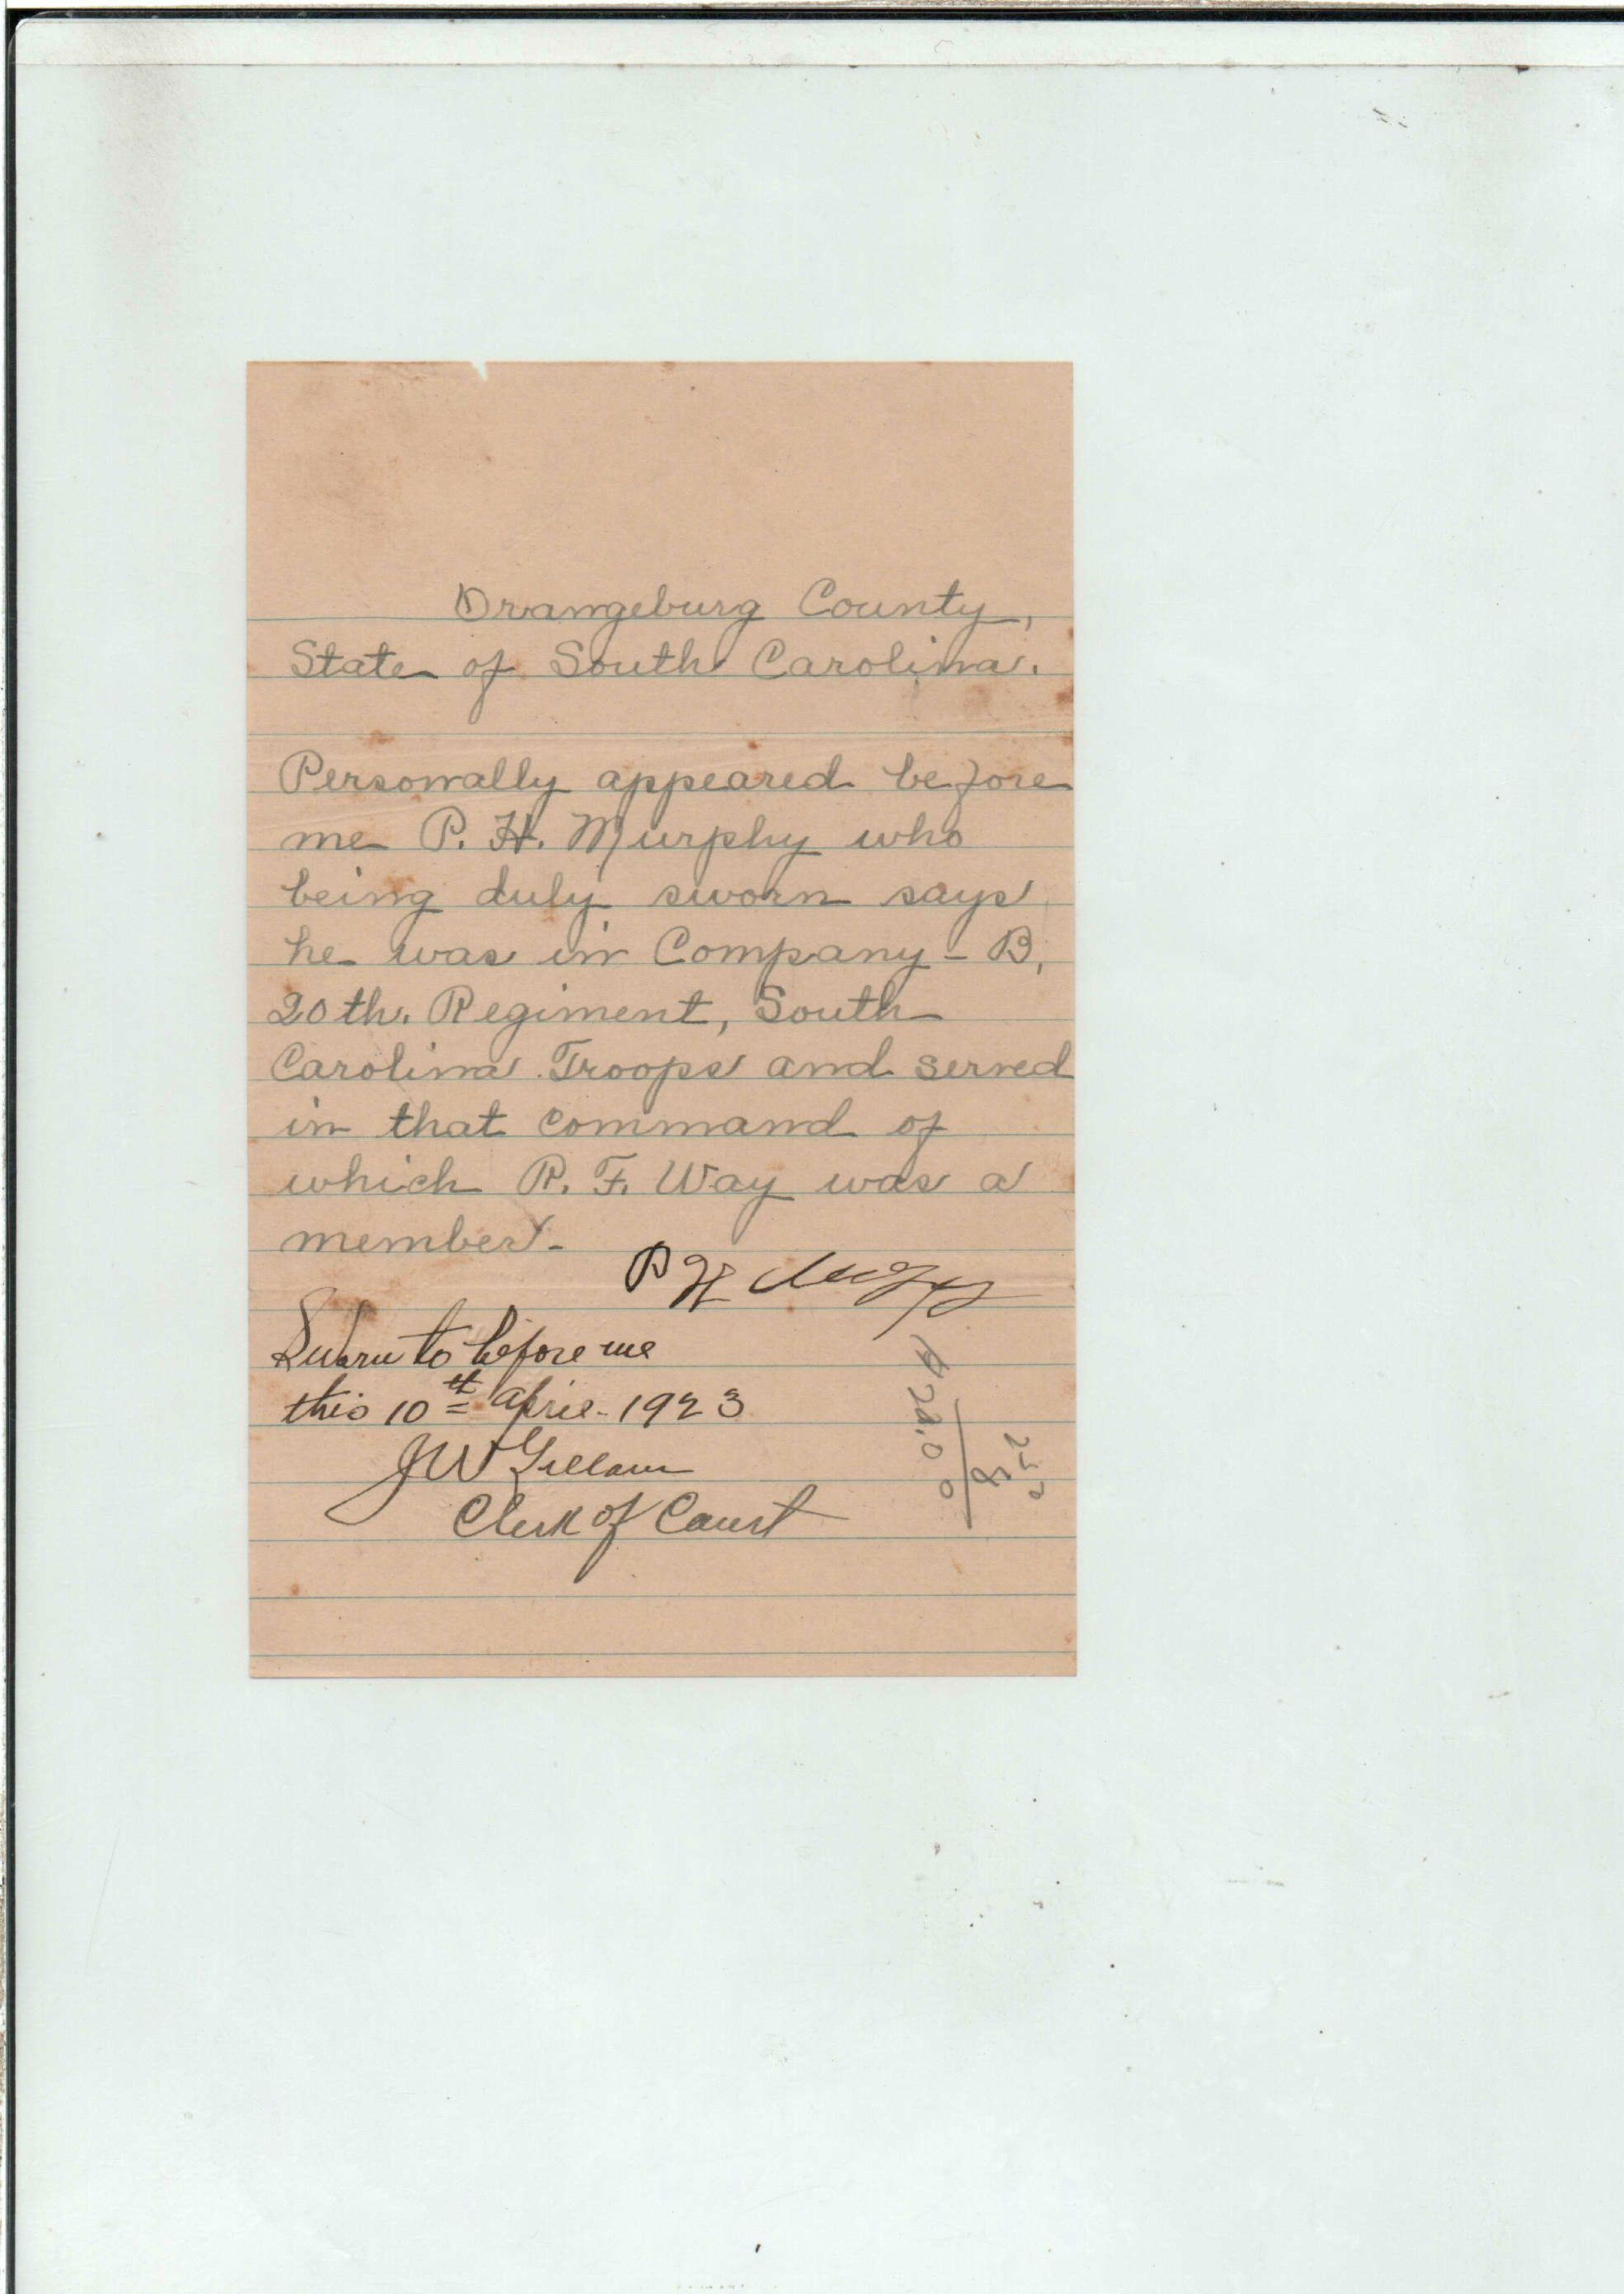 Orangeburg County,
State of South Carolina.
Personally appeared before
me P. H. Murphy who
being duly sworn says
he was in Company - B,
20th. Regiment, South
Carolina Troops and served
in that command of
which R. F. Way was a
member.
P H
Sworn to before me
this 10th April - 1923
J W Gillam
Clerk of Court
250
8
$20.00